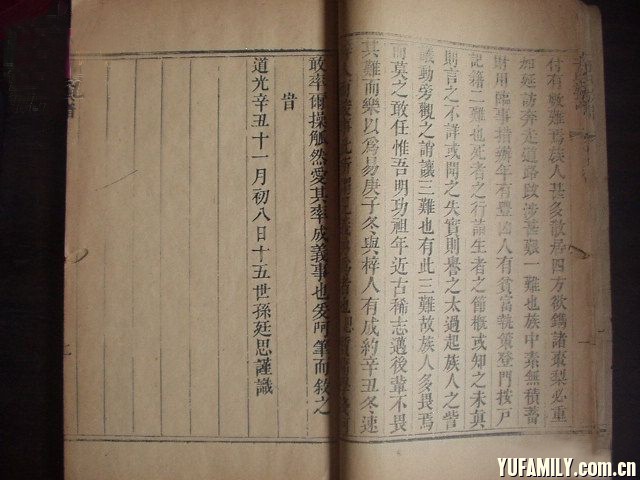 付有敬難焉族人甚多散處四方欲鐫諸棗梨必重
如延訪奔走道路跋涉甚艱一難也族中素無積蓄
財用臨事措辦年有豐凶人有貧富執策登門按戶
記籍二難也死者之行誼生者之節概或知之未真
則言之不詳或聞之失實則譽之太過起族人之訾
議動旁觀之謂讓三難也有此三難故族人多畏焉
而莫之敢任惟吾明功祖年近古稀志邁後輩不畏
其難而樂以為易庚子冬與梓人有成約辛丑冬速
敢率爾操觚然愛其率成義事也爰呵筆而敘之
旹
道光辛丑十一月初八日十五世孫廷思謹識
YUFAMILY.com.cn